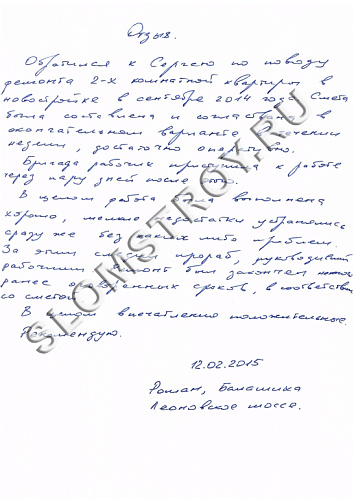 Отзыв.
Обратился к Сергею по поводу
ремонта 2-х комнатной квартиры в
новостройке в сентябре 2014 года. Смета
была составлена и согласована в
окончательном варианте в течении
недели, достаточно оперативно.
Бригада рабочих приступила к работе
через пару дней после этого.
В целом работа была выполнена
хорошо, мелкие недостатки устранялись
сразу же без каких либо проблем.
За этим следил прораб, руководивший
рабочими. Ремонт был закончен
ранее оговоренных сроков, в соответствии
со сметой.
В целом впечатления положительные.
Рекомендую.
12.02.2015
Роман, Балашиха
Леоновское шоссе.
SLOMSTROY.RU